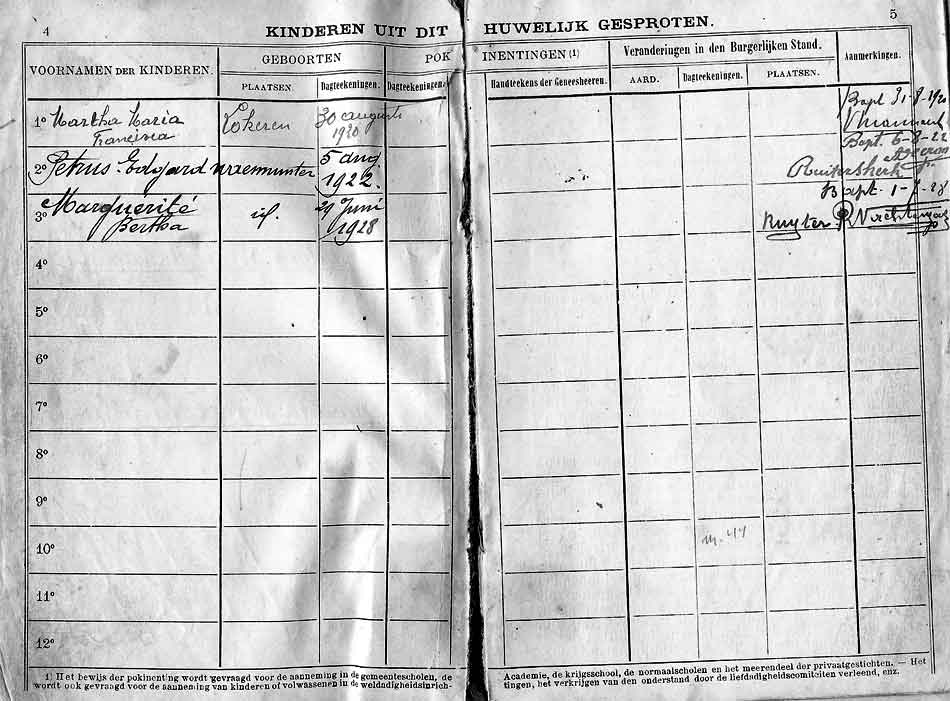 4
KINDEREN UIT DIT HUWELIJK GESPROTEN.
5
VOORNAMEN DER KINDEREN.
GEBOORTEN
PLAATSEN.
Dagteekeningen.
POKINENTINGEN (1)
Dagteekeningen.
Handteekens der Geneesheeren.
Veranderingen in den Burgerlijken Stand.
AARD.
Dagteekeningen.
PLAATSEN.
Aanmerkingen.
1º Martha Maria Lokeren 30 augusti
Francisca 1920
Bapt 31-8-1920
2º Petrus Edgard 5 aug
1922.
Bapt. 6-8-22
3º Marguerite id. 29 Juni
Bertha 1928
Bapt. 1-7-28
4º
5º
6º
7º
8º
9º
10º
11º
12º
1) Het bewijs der pokinenting wordt gevraagd voor de aanneming in de gemeentescholen, de
wordt ook gevraagd voor de aanneming van kinderen of volwassenen in de weldadigheidsinrich-
Academie, de krijgsschool, de normaalscholen en het meerendeel der privaatgestichten. — Het
tingen, het verkrijgen van den onderstand door de liefdadigheidscomiteiten verleend, enz.